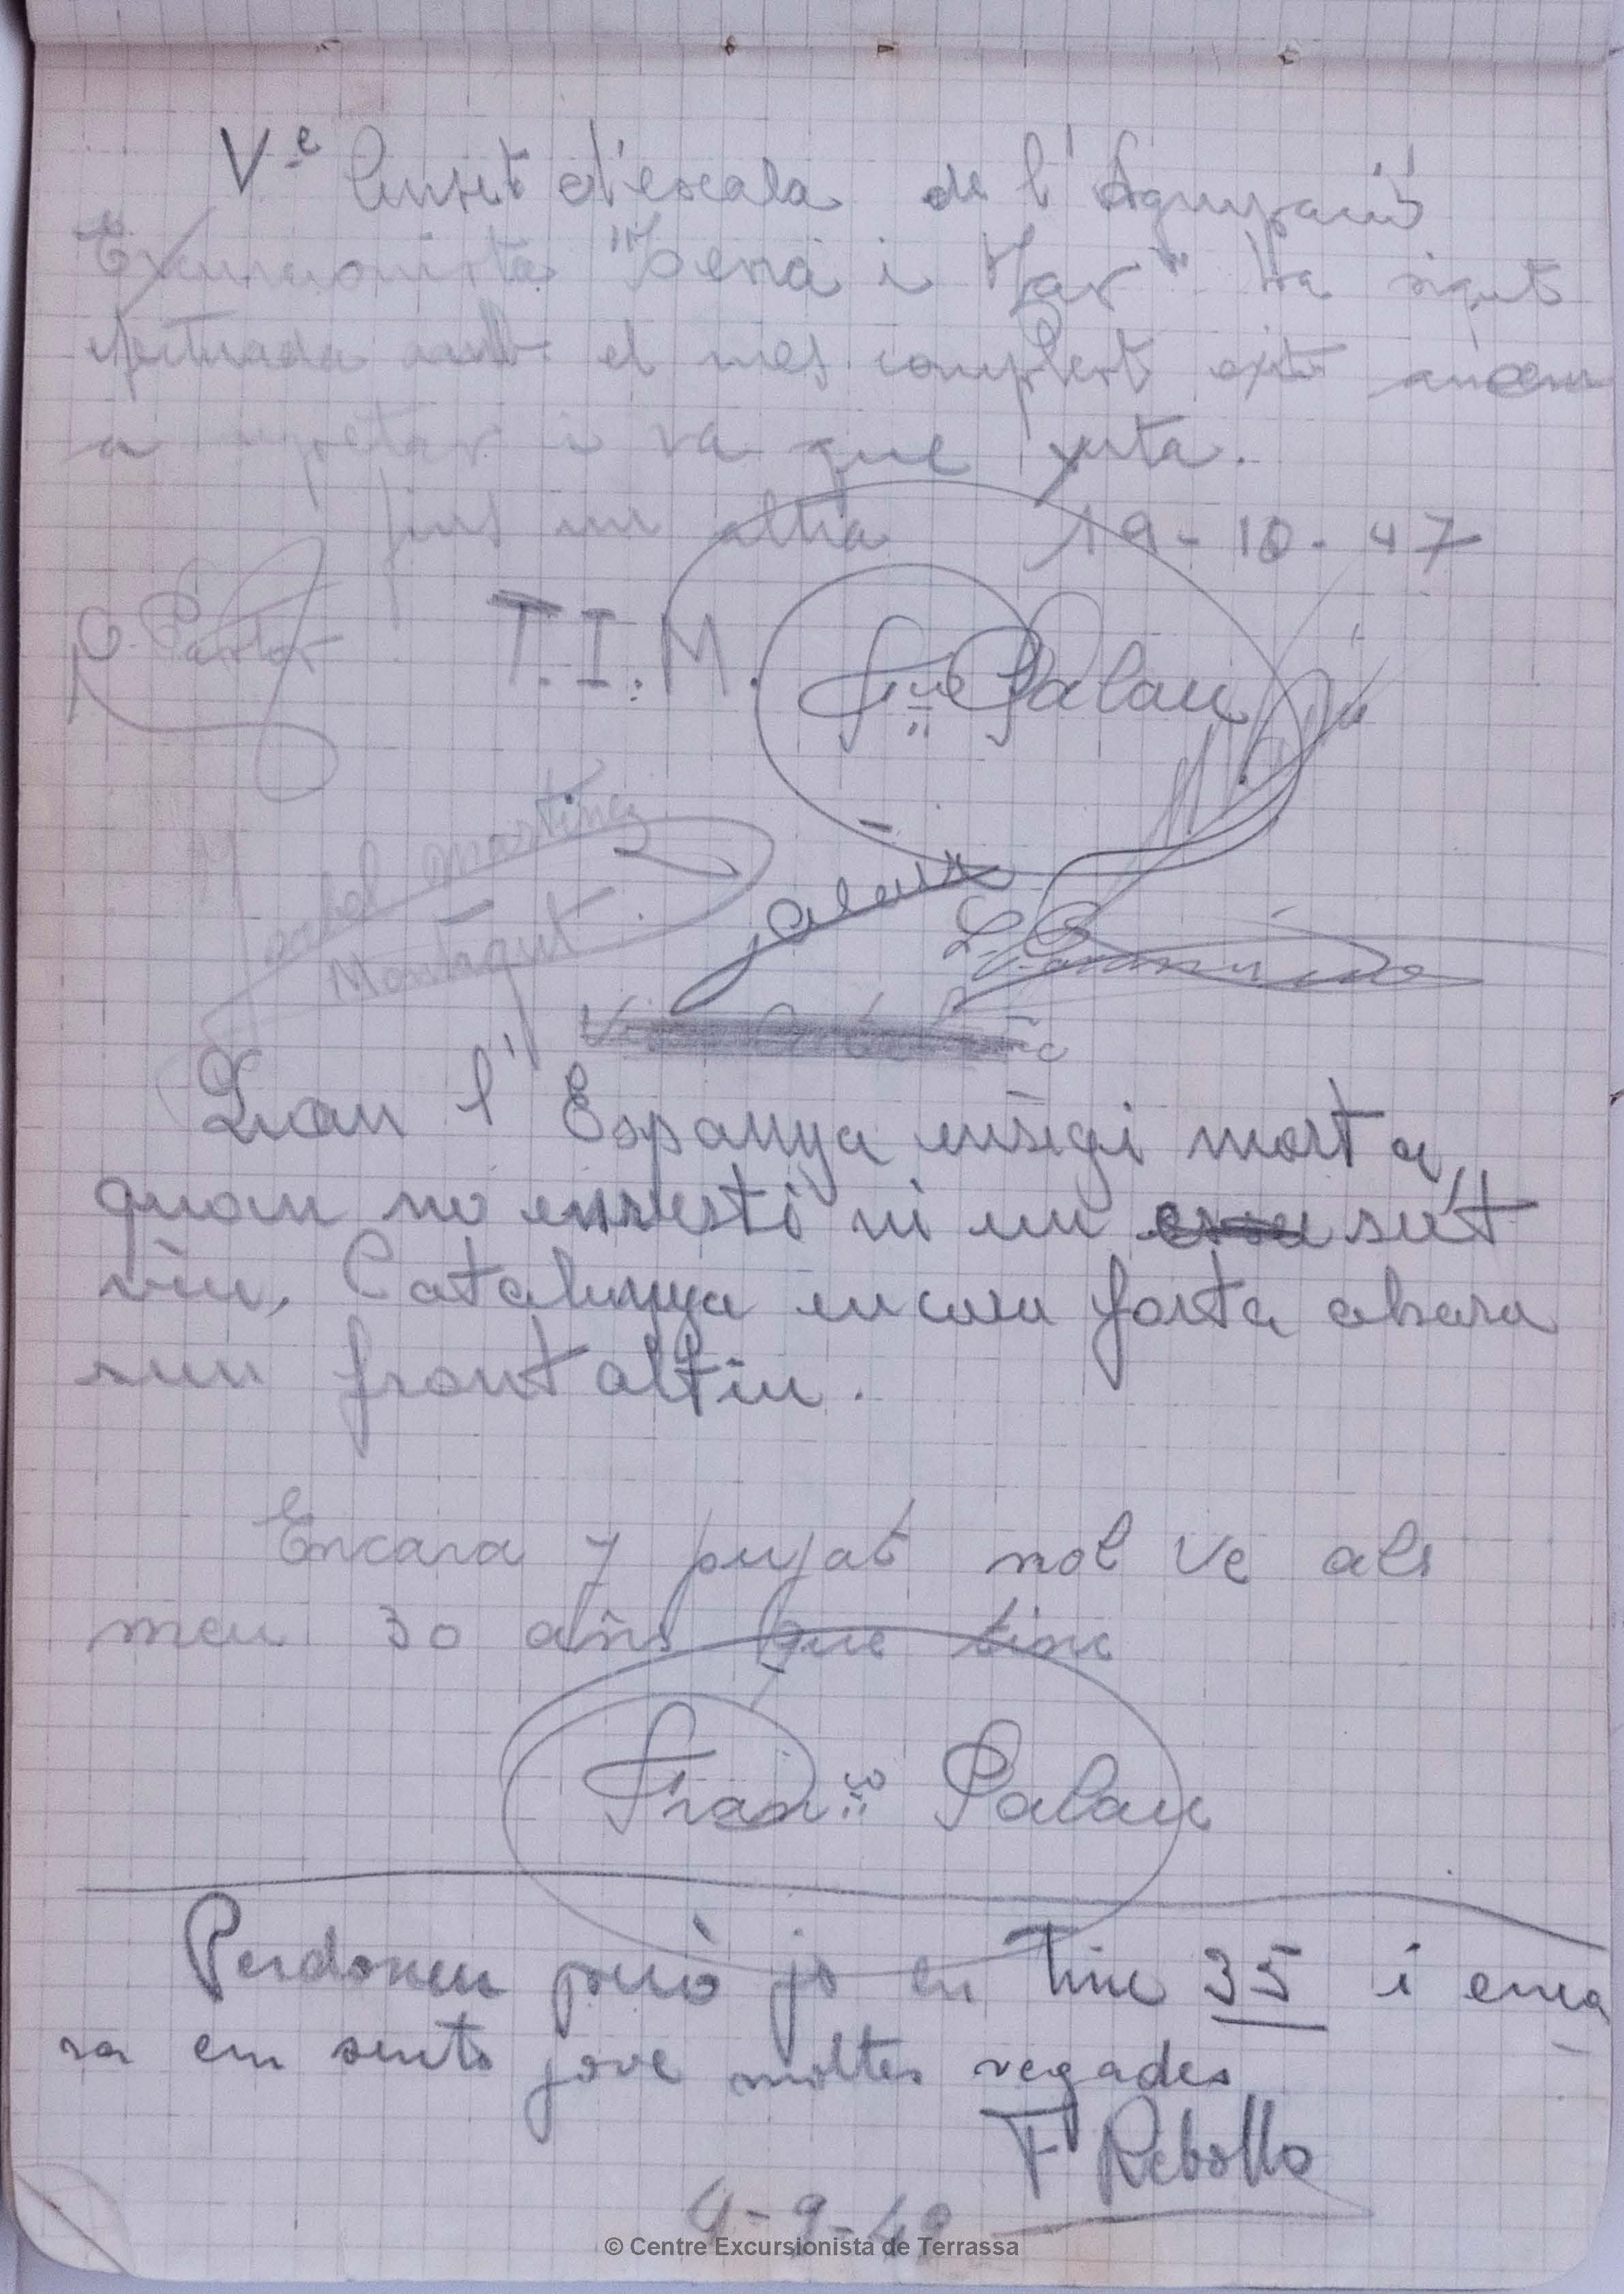 Vᵉ Curset d'escala de l'Agrupació
Excursionista "Terra i Mar" Ha sigut
efectuada amb el mes complert exit anem
a repetar i va que xuta.
fins un altra 19-10-47
Pastor T.I.M. Palau
Isabel Martinez
Montagut
Quan l'Espanya ensigi morta,
quan no enresti ni un sút
viu, Catalunya encara forta alsara
sun front altiu.
Encara y pujat nol ve als
meu 30 añs que tinc
Franᶜᵒ Palau
Perdoneu però jo en tinc 35 i enca
ra em sento jove moltes vegades
F Rebollo
4-9-49
© Centre Excursionista de Terrassa